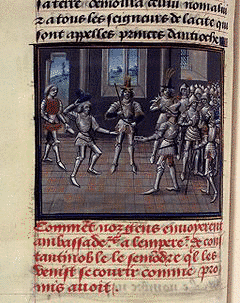 sa terre demoura
ra tous les seigneurs de la cite qui
sont apelles princes dantioche
Comment noz gens enuoyerent
ambassade a lempere de con
stantinoble le semondre q les
venist secourir comme pro
mis auoit